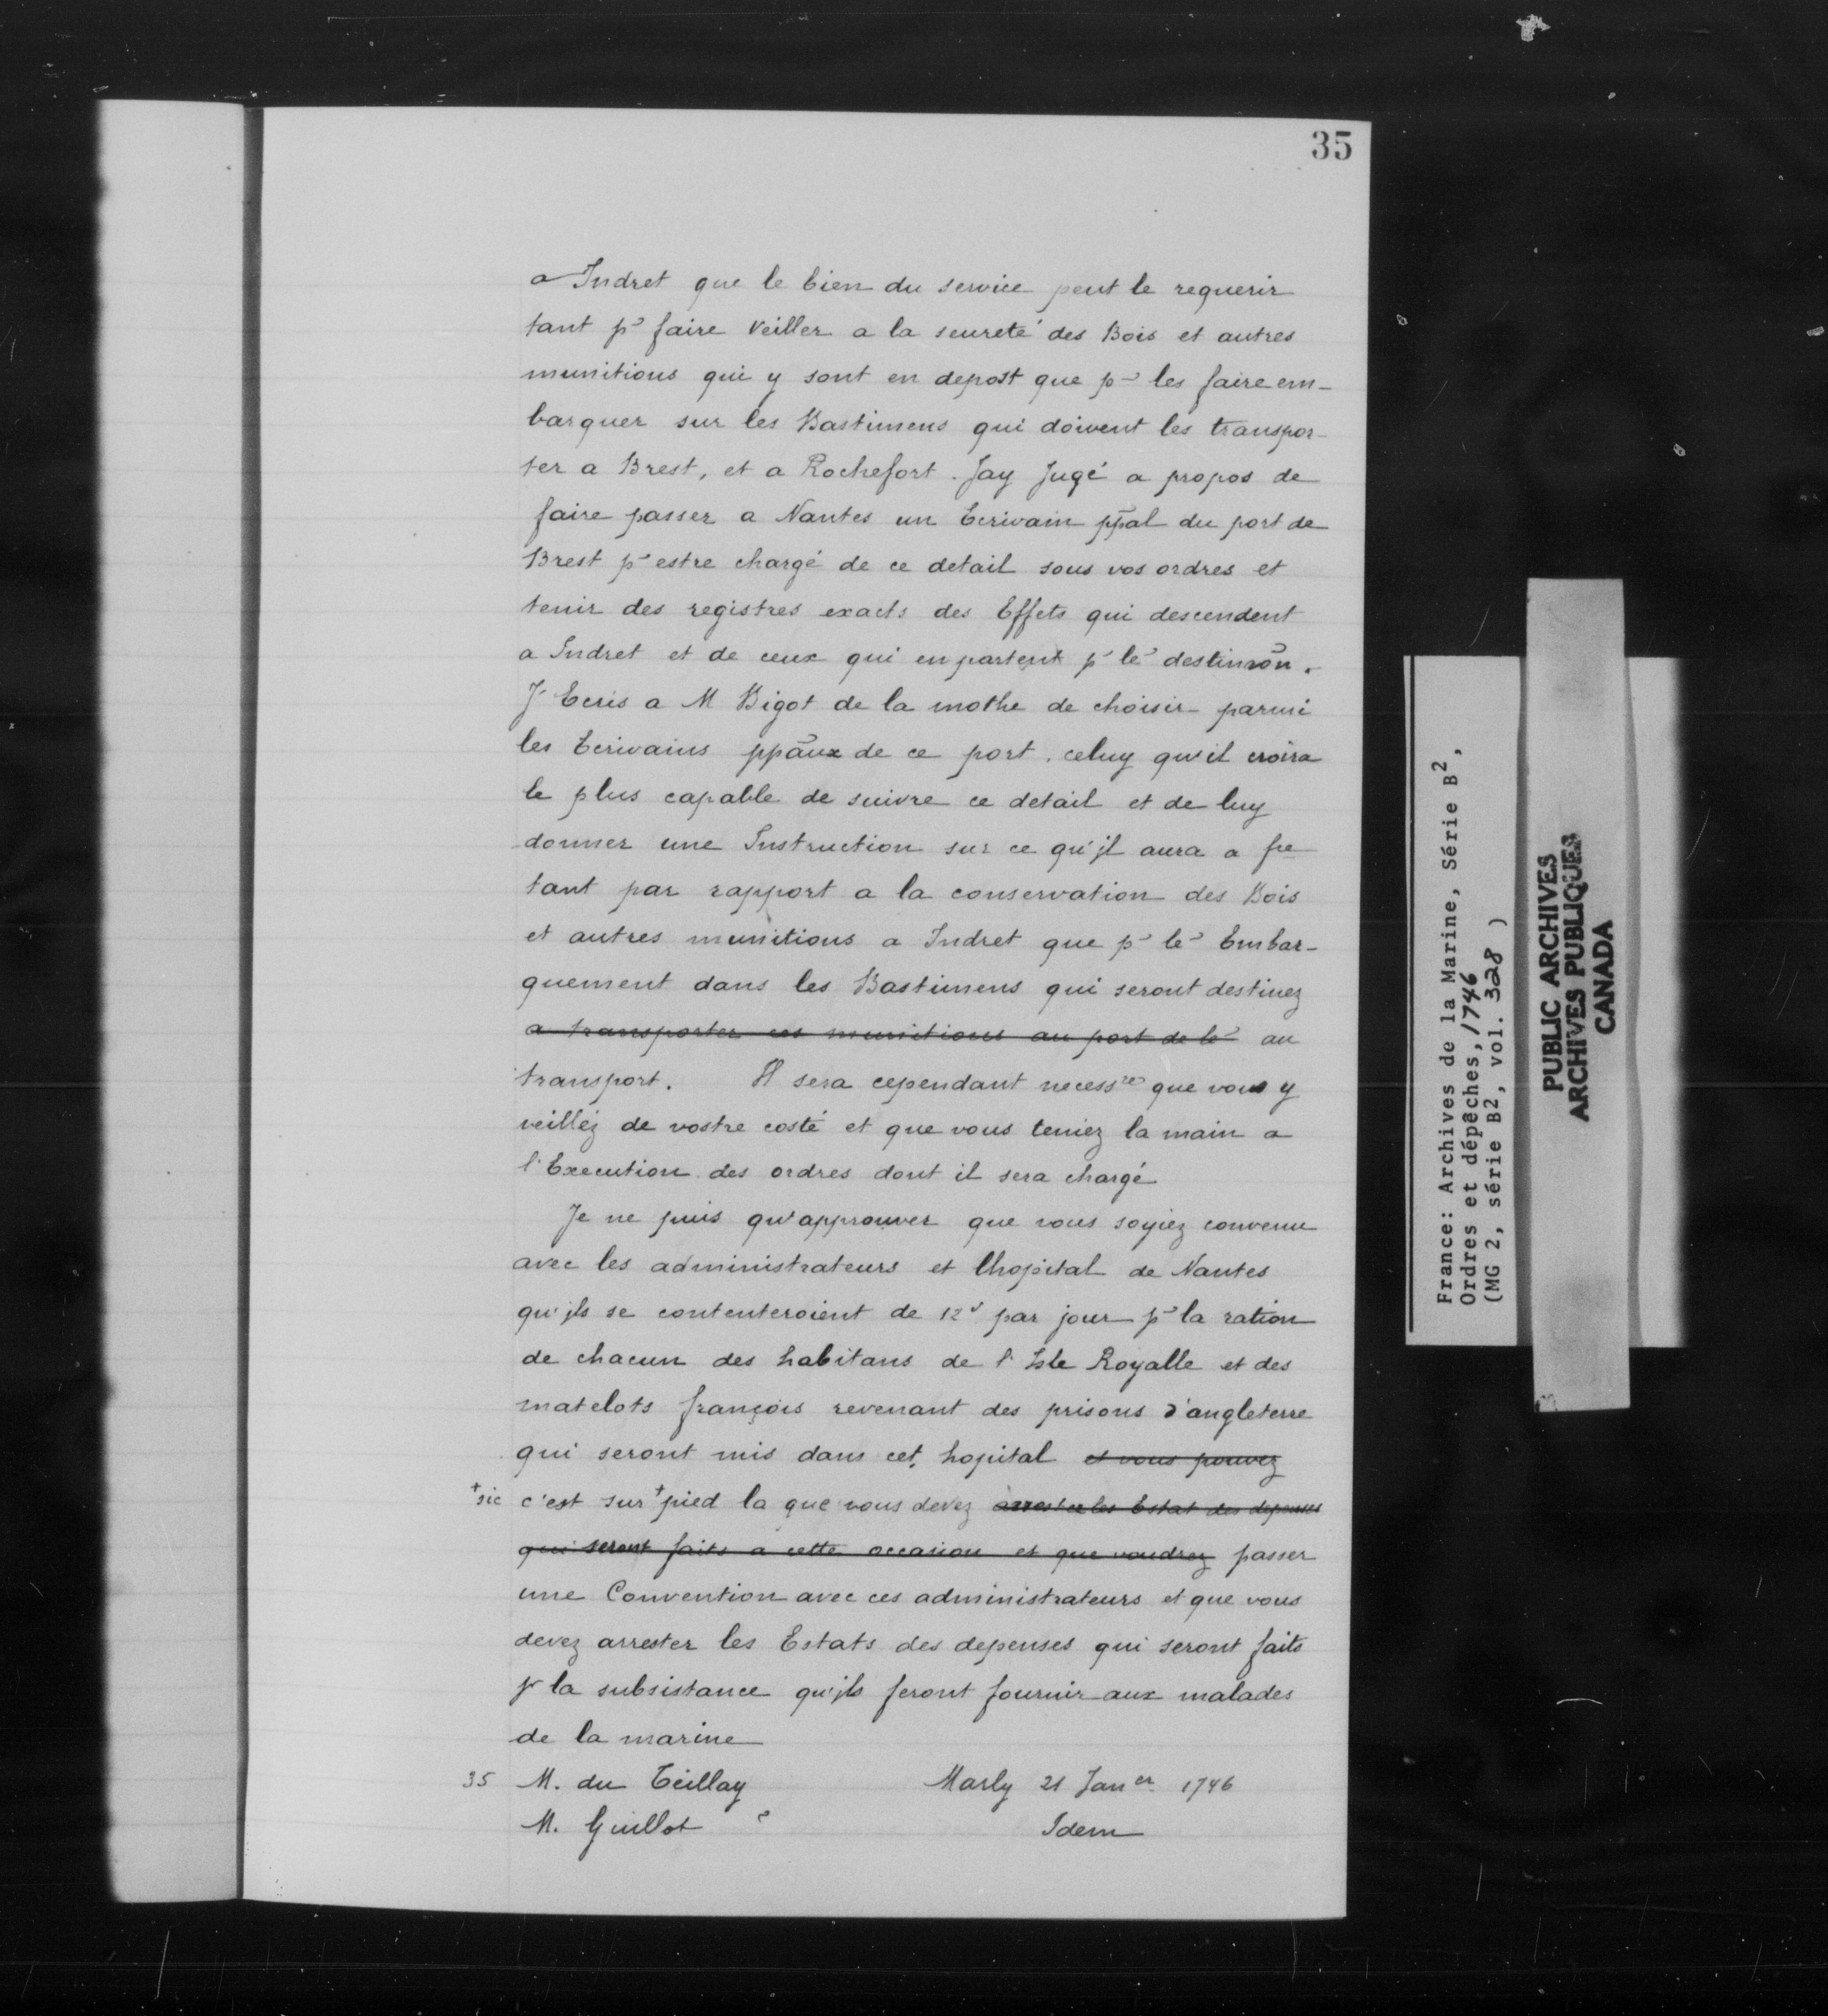 35
a Indret que le bien du service peut le requerir
tant pr faire veiller a la seureté des Bois et autres
munitions qui y sont en depost que pr les faire em-
barquer sur les Bastimens qui doivent les transpor-
ter a Brest, et a Rochefort. Jay Jugé a propos de
faire passer a Nantes un Ecrivain ppãl du port de
Brest pr estre chargé de ce detail sous vos ordres et
tenir des registres exacts des Effets qui descendent
a Indret et de ceux qui en partent pr le destinaõn.
J'Ecris a M Bigot de la mothe de choisir parmi
les Ecrivains ppãux de ce port. celuy qu'il croira
le plus capable de suivre ce detail et de luy
donner une Instruction sur ce qu'jl aura a fre
tant par rapport a la conservation des Bois
et autres munitions a Indret que pr le Embar-
quement dans les Bastimens qui seront destinez
a transporter ces munitions au port de le au
transport. Il sera cependant necessre que vous y
veilléz de vostre costé et que vous teniez la main a
l'Execution des ordres dont il sera chargé
Je ne puis qu'approuver que vous soyiez convenu
avec les administrateurs et lhopital de Nantes
qu'jls se contenteroient de 12s par jour pr la ration
de chacun des habitans de l'Isle Royalle et des
matelots françois revenant des prisons d'angleterre
qui seront mis dans cet hopital et vous pouvez
+sic c'est sur + pied la que vous devez arrester les Estat des depenses
qui seront faits a cette occasion et que voudrez passer
une Convention avec ces administrateurs et que vous
devez arrester les Estats des depenses qui seront faits
pr la subsistance qu'jls feront fournir aux malades
de la marine
35 M. du Teillay Marly 21 Janer 1746
M. Guillot Idem
France: Archives de la Marine, Série B2,
Ordres et dépêches, 1746
(MG 2, série B2, vol. 328 )
PUBLIC ARCHIVES
ARCHIVES PUBLIQUES
CANADA